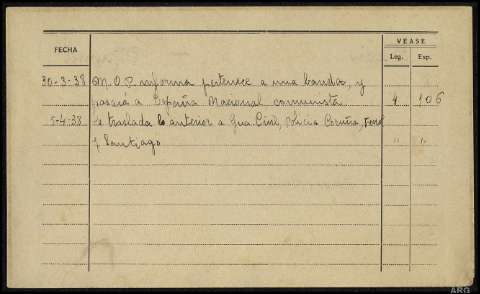 VÉASE
FECHA
Leg. Exp.
30-3-38 M.O.P. informa pertenece a una banda, y
pasará a España Nacional comunista 4 106
5-4-38 Se traslada lo anterior a Gua. Civil, Policía Coruña, Ferrol
y Santiago " "
ARG